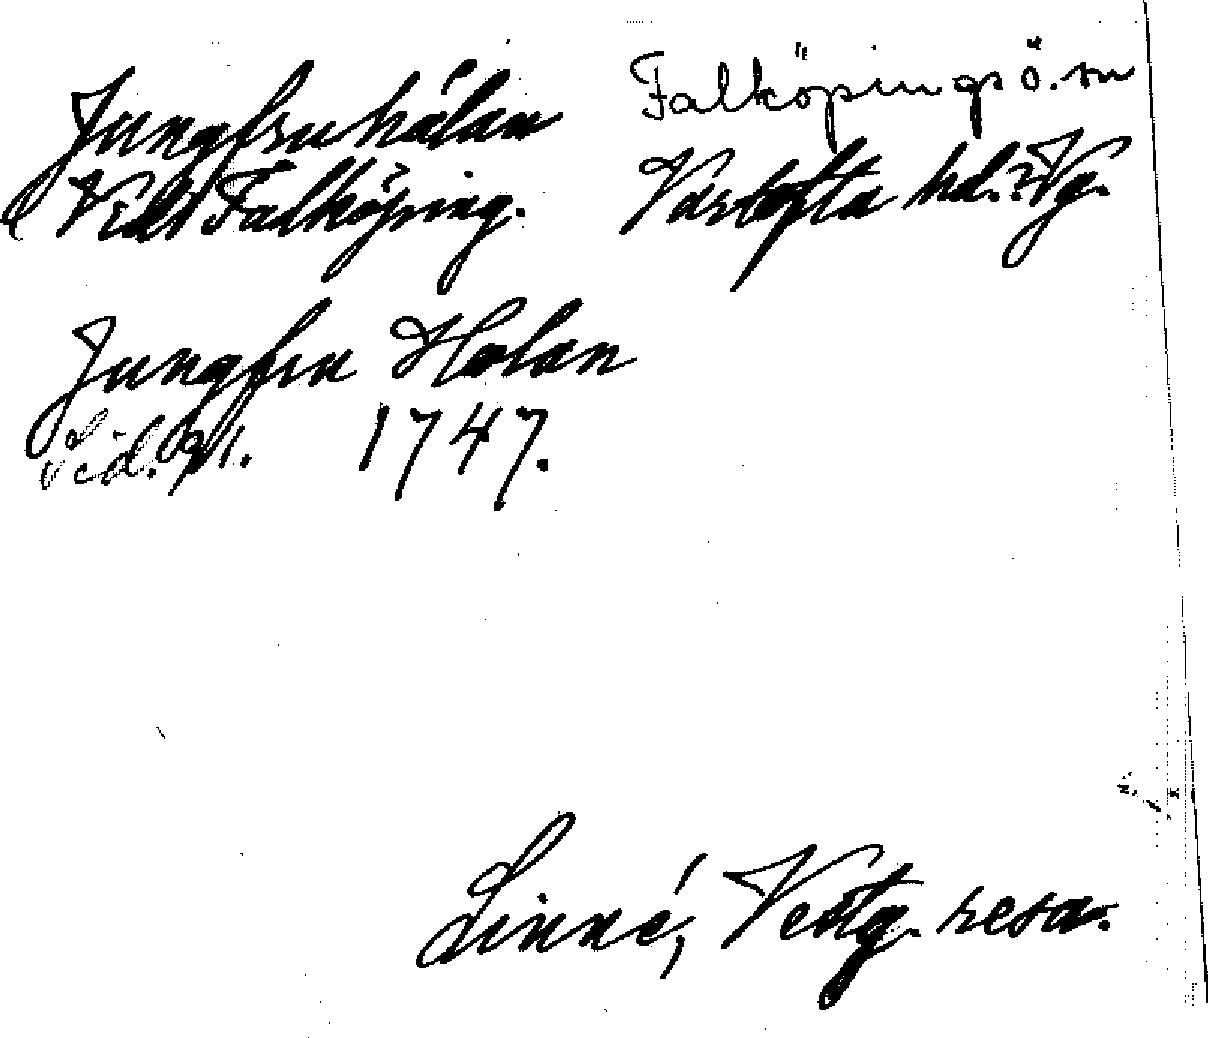 Jungfruhålan
Vidt Falköping.
Falköpings ö. sn
Vartofta hd. Vg.
Jungfru Holan
Sid. 91. 1747.
Linné, Vestg. resa.